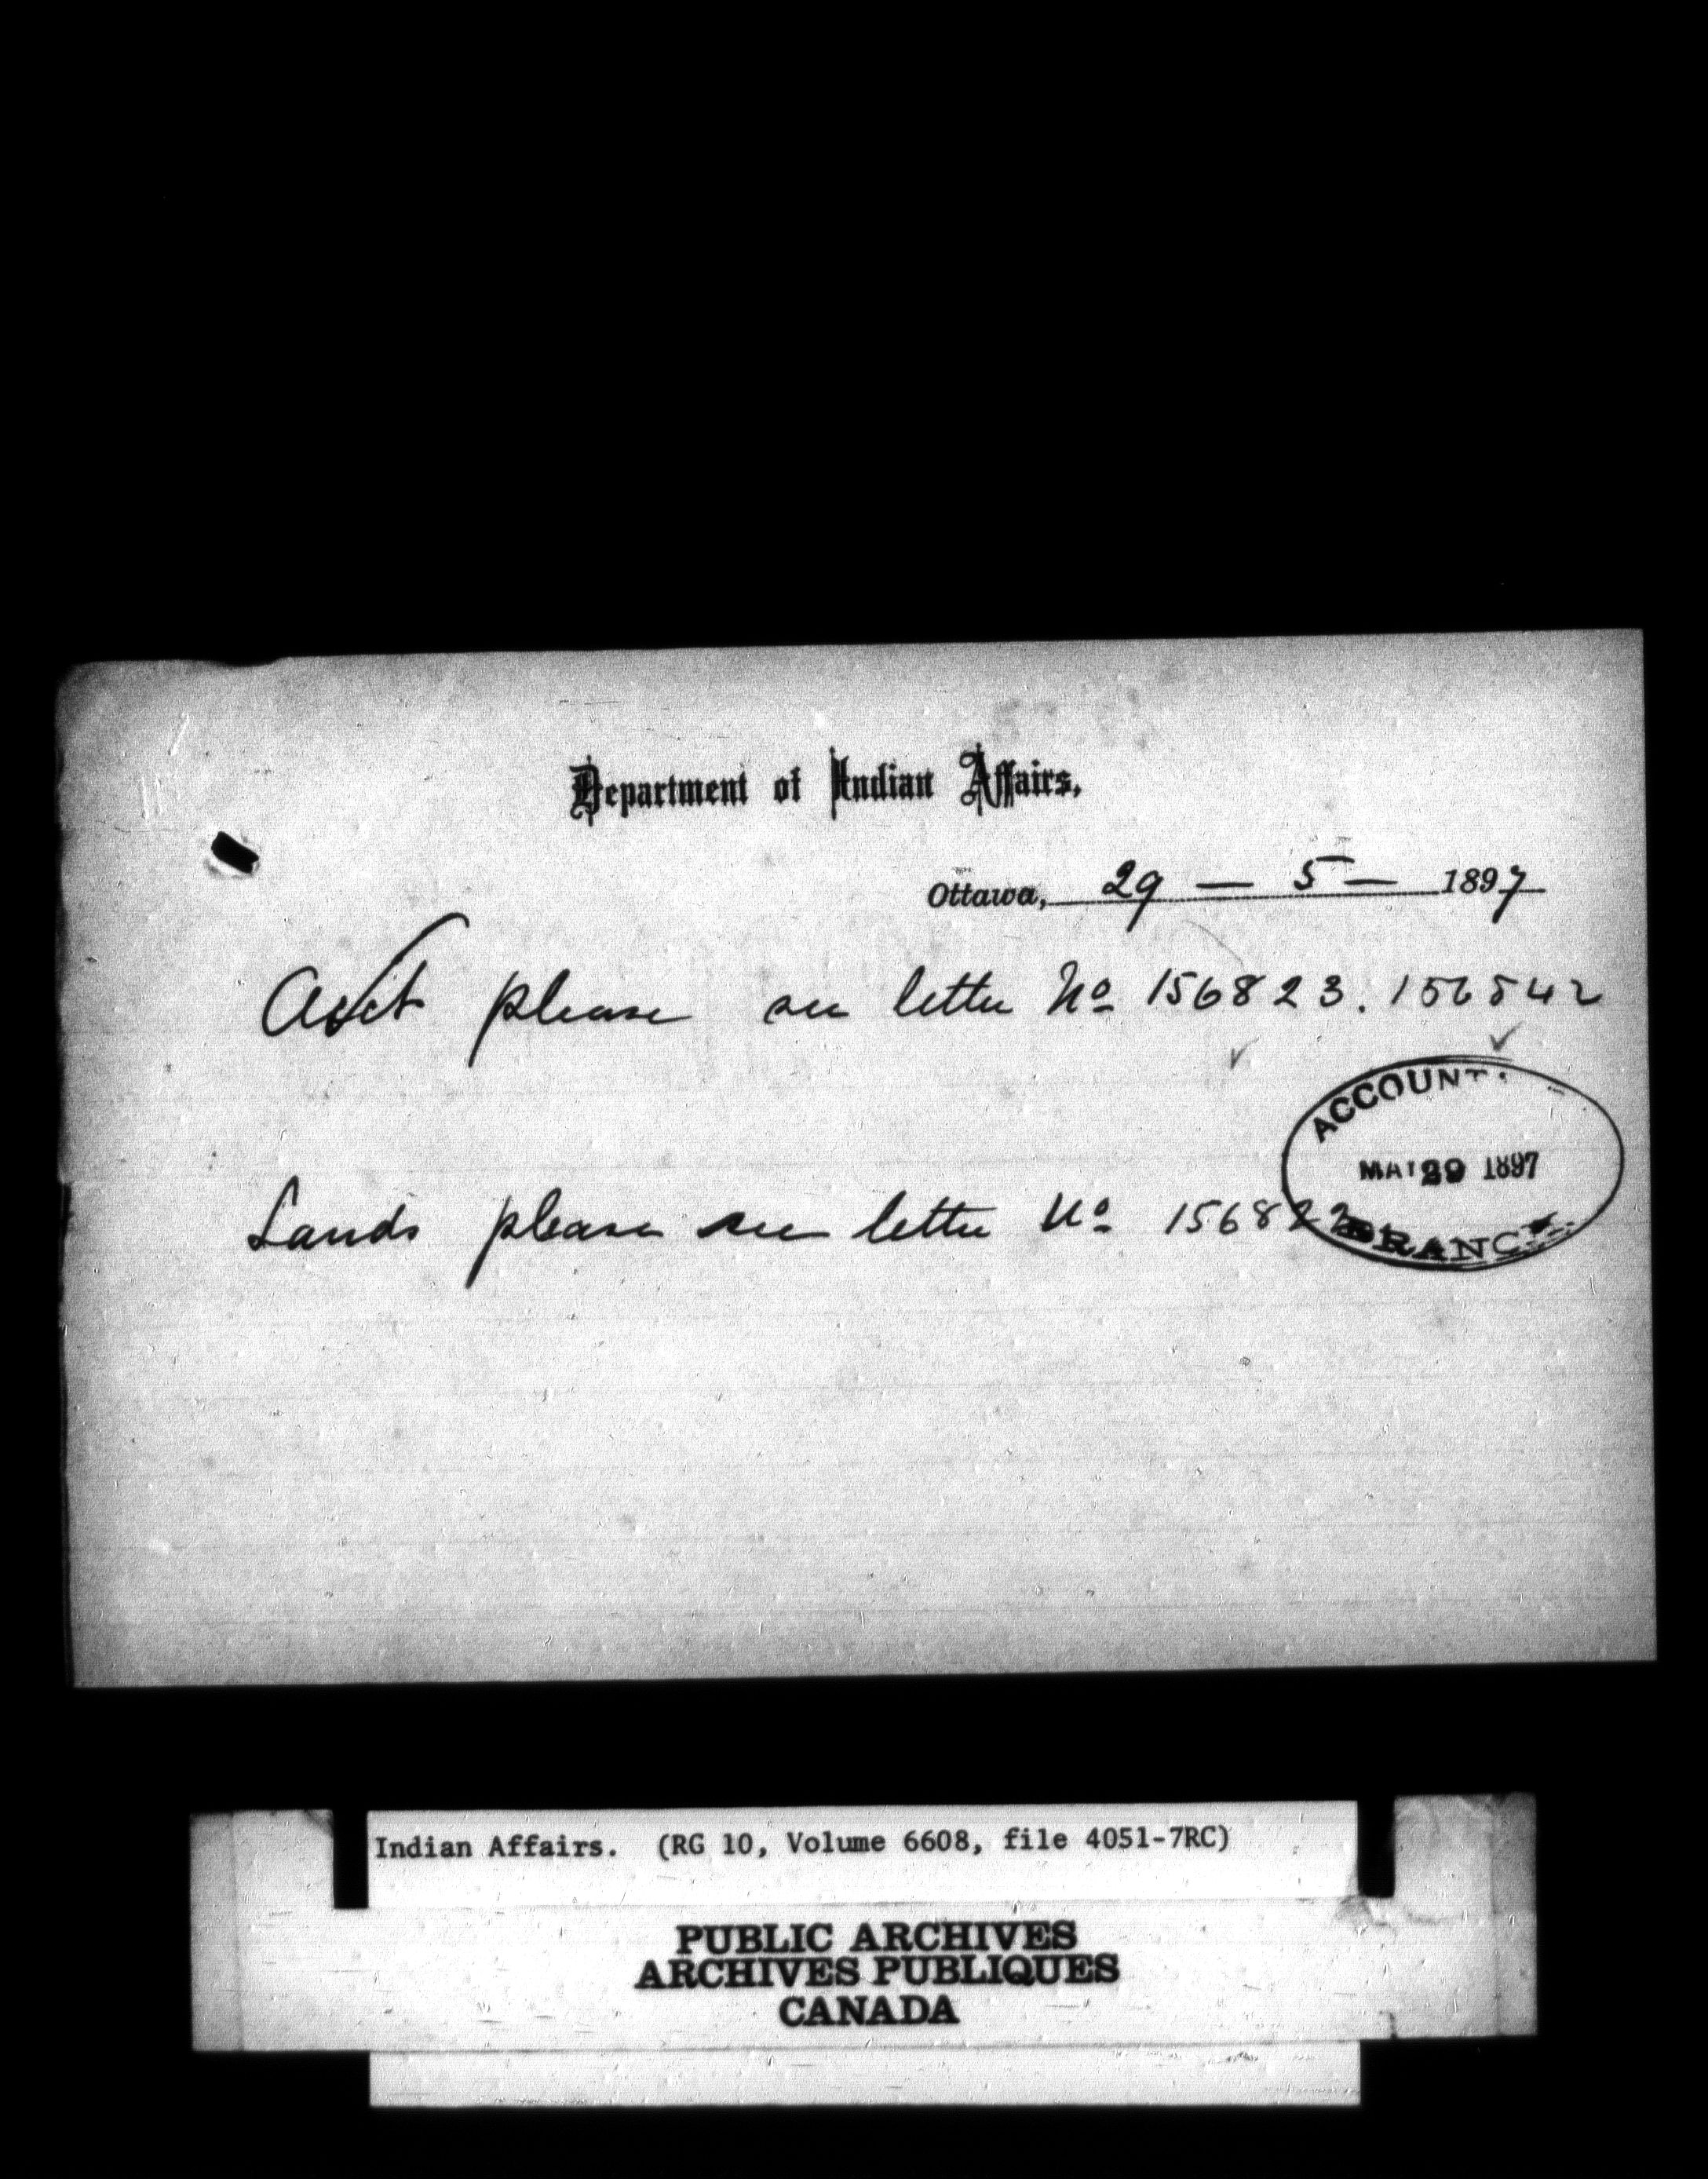 Department of Indian Affairs,
Ottawa, 29 — 5 — 1897
Acct please see letter No 156823. 156842
ACCOUNT
MAY 29 1897
BRANCH
Lands please see letter No 156822
Indian Affairs. (RG 10, Volume 6608, file 4051-7RC)
PUBLIC ARCHIVES
ARCHIVES PUBLIQUES
CANADA